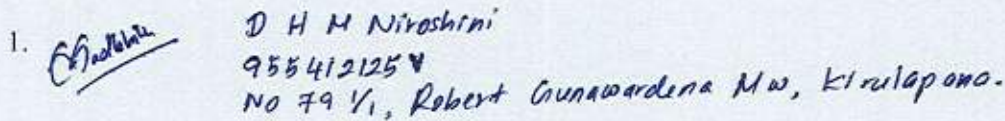 1. D H M Niroshini
955412125V
No 79 1/1, Robert Gunawardena Mw, Kirulapona.